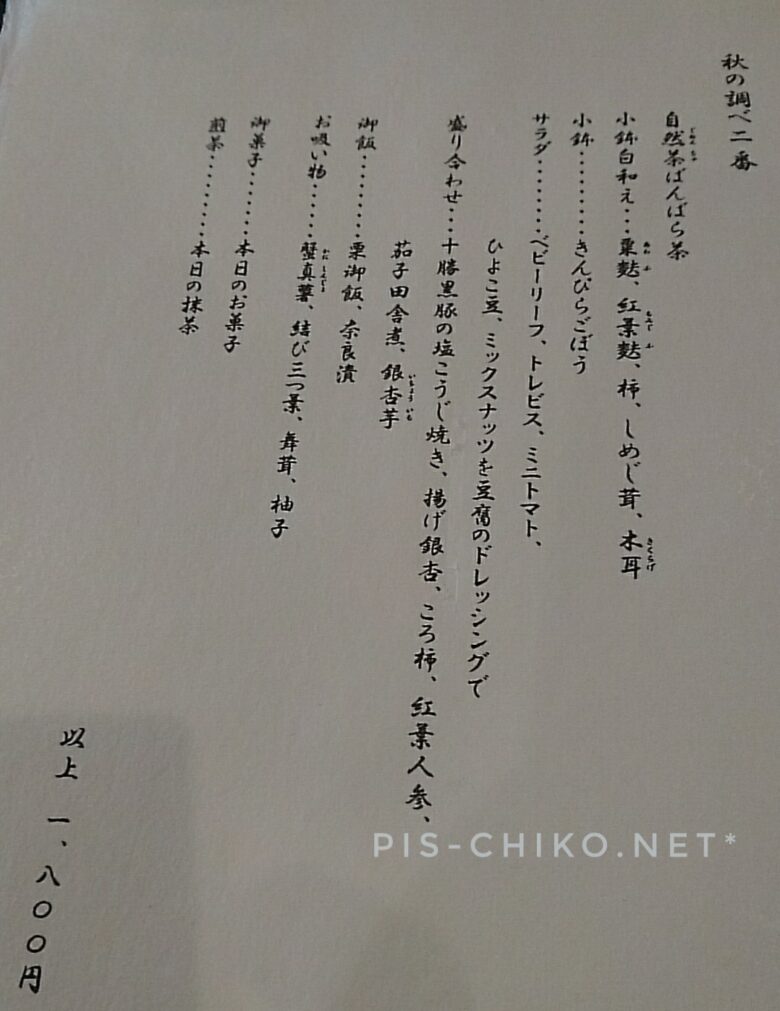 秋の調べ二番
自然茶ばんばら茶
小鉢白和え…粟麩、紅葉麩、柿、しめじ茸、木耳
小鉢………きんぴらごぼう
サラダ………ベビーリーフ、トレビス、ミニトマト、
ひよこ豆、ミックスナッツを豆腐のドレッシングで
盛り合わせ…十勝黒豚の塩こうじ焼き、揚げ銀杏、ころ柿、紅葉人参、
茄子田舎煮、銀杏芋
御飯………栗御飯、奈良漬
お吸い物……蟹真薯、結び三つ葉、舞茸、柚子
御菓子………本日のお菓子
煎茶………本日の抹茶
以上 一、八〇〇円
PIS-CHIKO.NET*